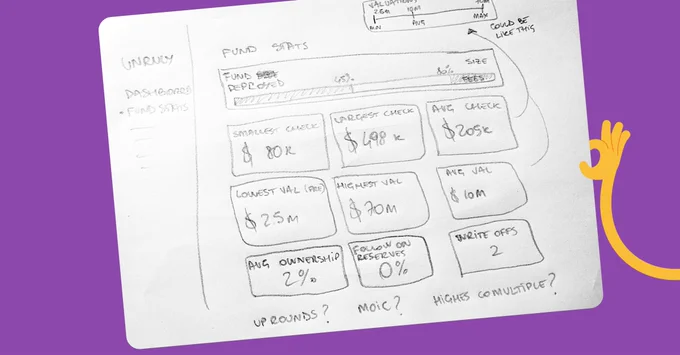 VALUATIONS
10M
MIN AVG MAX
COULD BE
LIKE THIS
UNRULY
DASHBOARD
FUND STATS
FUND STATS
FUND SIZE
DEPLOYED 45% 80% FEES
SMALLEST CHECK
$ 80K
LARGEST CHECK
$ 498K
AVG CHECK
$ 205K
LOWEST VAL (PRE)
$ 2.5M
HIGHEST VAL
$ 70M
AVG VAL
$ 10M
AVG OWNERSHIP
2%
FOLLOW ON
RESERVES
0%
WRITE OFFS
2
UP ROUNDS?
MOIC?
HIGHES CO MULTIPLE?